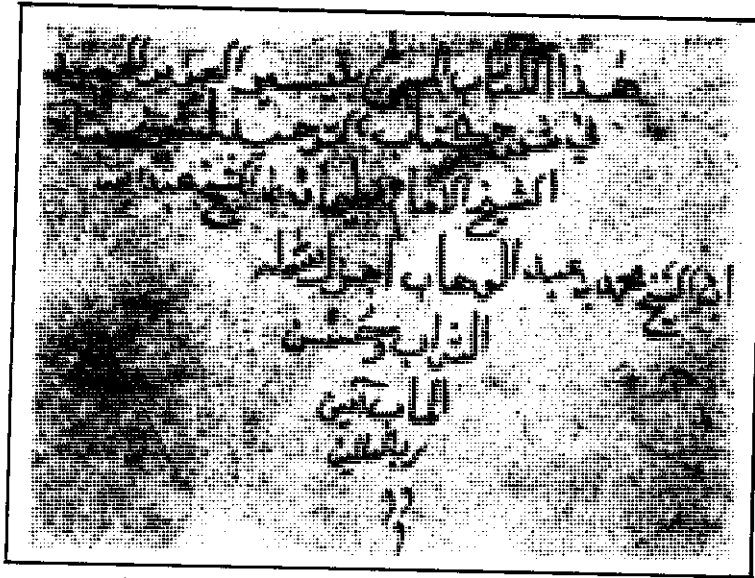 هذا الكتاب المسمى بتيسير العزيز الحميد
في شرح كتاب التوحيد
الشيخ الامام سليمان بن الشيخ عبد الله
ابن الشيخ محمد بن عبد الوهاب اجزل الله له
الثواب وحسن
المآب آمين